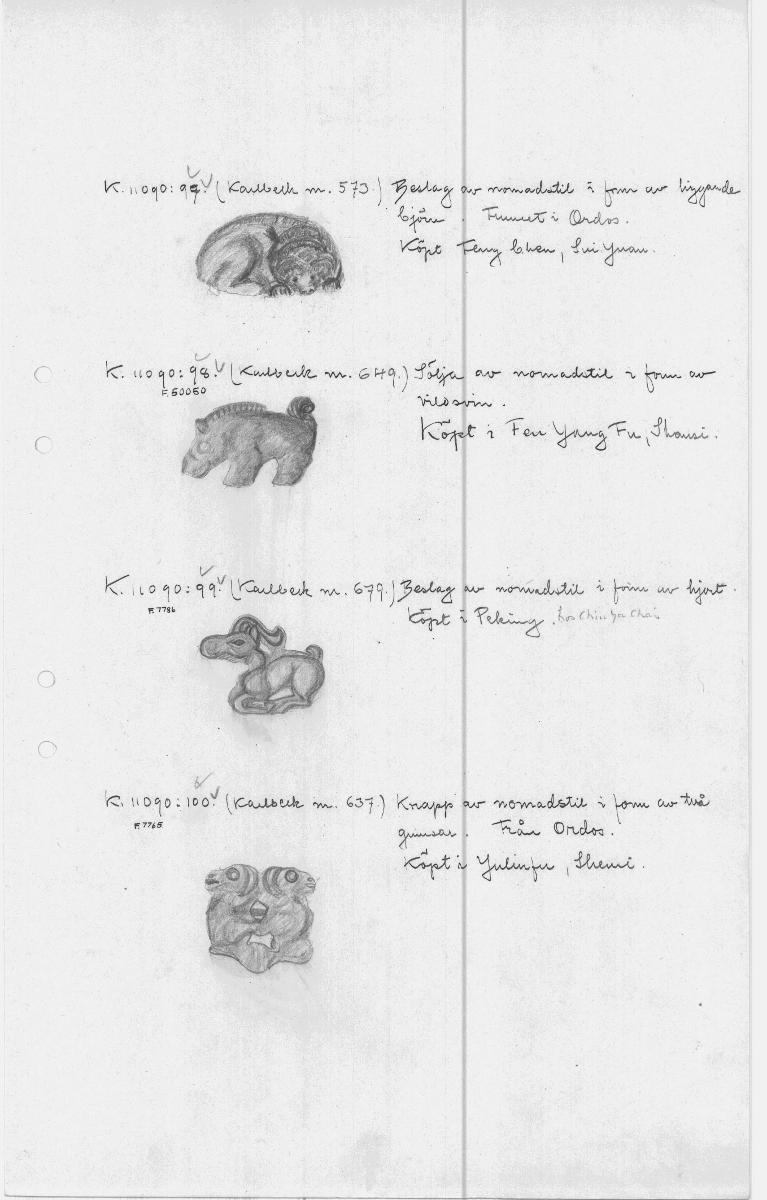 K. 11090:97. (Karlbeck nr. 573.) Beslag av nomadstil i form av liggande
björn. Funnet i Ordos.
Köpt Feng Chen, Sui Yuan.
K. 11090:98. (Karlbeck nr. 649.) Sölja av nomadstil i form av
F. 50050
vildsvin.
Köpt i Fen Yang Fu, Shansi.
K. 11090:99. (Karlbeck nr. 679.) Beslag av nomadstil i form av hjort.
F. 7786
Köpt i Peking. hos Chin Ya Chai
K. 11090:100. (Karlbeck nr. 637.) Knapp av nomadstil i form av två
F. 7765
gumsar. Från Ordos.
Köpt i Yulinfu, Shensi.